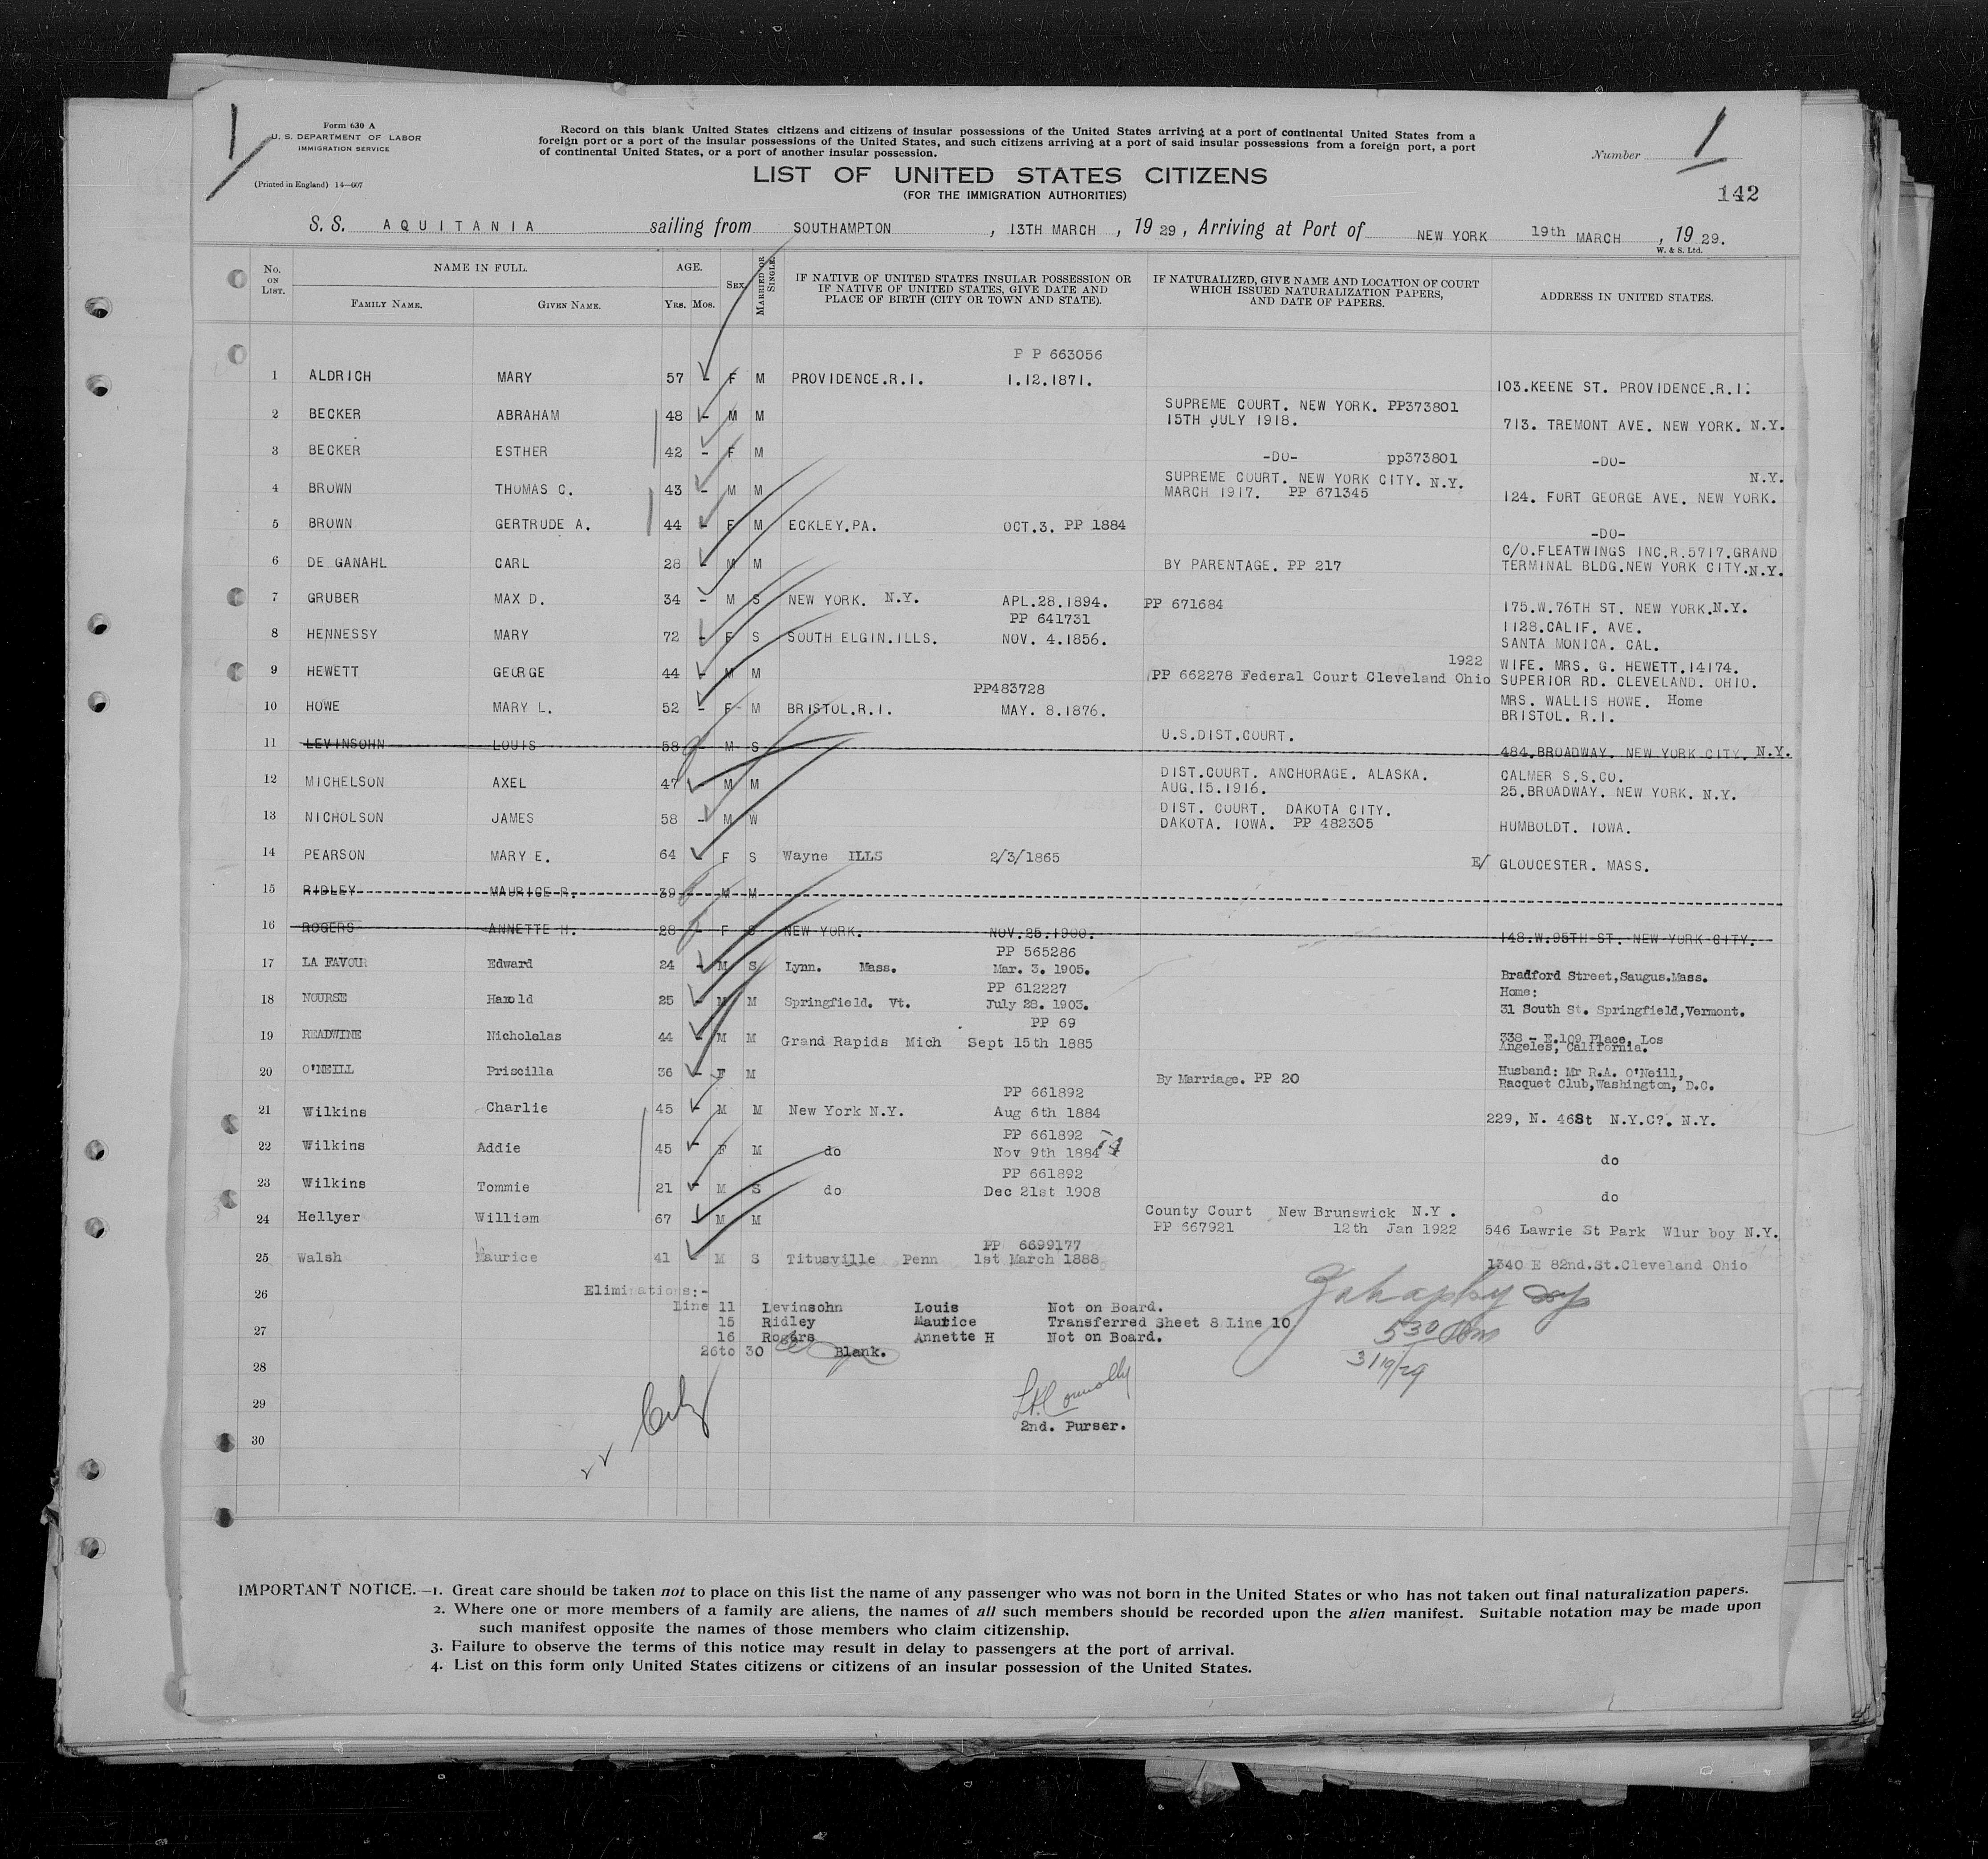 Form 630 A
U. S. DEPARTMENT OF LABOR
IMMIGRATION SERVICE
(Printed in England) 14—607
Record on this blank United States citizens and citizens of insular possessions of the United States arriving at a port of continental United States from a
foreign port or a port of the insular possessions of the United States, and such citizens arriving at a port of said insular possessions from a foreign port, a port
of continental United States, or a port of another insular possession.
Number 1
1
LIST OF UNITED STATES CITIZENS
(FOR THE IMMIGRATION AUTHORITIES)
142
S. S. AQUITANIA sailing from SOUTHAMPTON, 13TH MARCH, 1929, Arriving at Port of NEW YORK 19th MARCH, 1929.
W. & S. Ltd.
No. ON LIST. NAME IN FULL. FAMILY NAME. GIVEN NAME. AGE. YRS. MOS. SEX MARRIED OR SINGLE. IF NATIVE OF UNITED STATES INSULAR POSSESSION OR IF NATIVE OF UNITED STATES, GIVE DATE AND PLACE OF BIRTH (CITY OR TOWN AND STATE). IF NATURALIZED, GIVE NAME AND LOCATION OF COURT WHICH ISSUED NATURALIZATION PAPERS, AND DATE OF PAPERS. ADDRESS IN UNITED STATES.
P P 663056
1 ALDRICH MARY 57 - F M PROVIDENCE.R.I. 1.12.1871. 103.KEENE ST. PROVIDENCE.R.I.
2 BECKER ABRAHAM 48 - M M SUPREME COURT. NEW YORK. PP373801
15TH JULY 1918. 713. TREMONT AVE. NEW YORK. N.Y.
3 BECKER ESTHER 42 - F M -DO- pp373801 -DO-
4 BROWN THOMAS C. 43 - M M SUPREME COURT. NEW YORK CITY. N.Y. N.Y.
MARCH 1917. PP 671345 124. FORT GEORGE AVE. NEW YORK.
5 BROWN GERTRUDE A. 44 - F M ECKLEY.PA. OCT.3. PP 1884 -DO-
6 DE GANAHL CARL 28 - M M BY PARENTAGE. PP 217 C/O.FLEATWINGS INC.R.5717.GRAND
TERMINAL BLDG.NEW YORK CITY.N.Y.
7 GRUBER MAX D. 34 - M S NEW YORK. N.Y. APL.28.1894. PP 671684 175.W.76TH ST. NEW YORK.N.Y.
PP 641731 1128.CALIF. AVE.
8 HENNESSY MARY 72 - F S SOUTH ELGIN.ILLS. NOV. 4.1856. SANTA MONICA. CAL.
1922 WIFE. MRS. G. HEWETT.14174.
9 HEWETT GEORGE 44 - M M PP 662278 Federal Court Cleveland Ohio SUPERIOR RD. CLEVELAND. OHIO.
PP483728 MRS. WALLIS HOWE. Home
10 HOWE MARY L. 52 - F M BRISTOL.R.I. MAY. 8.1876. BRISTOL. R.I.
11 LEVINSOHN LOUIS 58 - M S U.S.DIST.COURT. 484.BROADWAY. NEW YORK CITY. N.Y.
12 MICHELSON AXEL 47 - M M DIST.COURT. ANCHORAGE. ALASKA. CALMER S.S.CO.
AUG.15.1916. 25.BROADWAY. NEW YORK. N.Y.
13 NICHOLSON JAMES 58 - M W DIST. COURT. DAKOTA CITY.
DAKOTA. IOWA. PP 482305 HUMBOLDT. IOWA.
14 PEARSON MARY E. 64 - F S Wayne ILLS 2/3/1865 E/ GLOUCESTER. MASS.
15 RIDLEY MAURICE R. 39 - M M
16 ROGERS ANNETTE H. 28 - F S NEW YORK. NOV.25.1900. 148.W.95TH ST. NEW YORK CITY.
PP 565286
17 LA FAVOUR Edward 24 - M S Lynn. Mass. Mar. 3. 1905. Bradford Street,Saugus.Mass.
PP 612227 Home:
18 NOURSE Harold 25 - M M Springfield. Vt. July 28. 1903. 31 South St. Springfield,Vermont.
PP 69
19 READWINE Nicholslas 44 - M M Grand Rapids Mich Sept 15th 1885 338 - E.109 Place, Los
Angeles, California.
20 O'NEILL Priscilla 36 - F M By Marriage. PP 20 Husband: Mr R.A. O'Neill,
Racquet Club,Washington, D.C.
PP 661892
21 Wilkins Charlie 45 - M M New York N.Y. Aug 6th 1884 229, N. 46St N.Y.C?. N.Y.
PP 661892
22 Wilkins Addie 45 - F M do Nov 9th 1884 do
PP 661892
23 Wilkins Tommie 21 - M S do Dec 21st 1908 do
24 Hellyer William 67 - M M County Court New Brunswick N.Y.
PP 667921 12th Jan 1922 546 Lawrie St Park Wlur boy N.Y.
PP 6699177
25 Walsh Maurice 41 - M S Titusville Penn 1st March 1888 1340 E 82nd.St.Cleveland Ohio
26 Eliminations:-
Line 11 Levinsohn Louis Not on Board.
27 15 Ridley Maurice Transferred Sheet 8 Line 10
16 Rogers Annette H Not on Board.
26to 30 Blank.
530 Pm
3/19/29
28
29
L.H.Connolly
2nd. Purser.
30
IMPORTANT NOTICE.—1. Great care should be taken not to place on this list the name of any passenger who was not born in the United States or who has not taken out final naturalization papers.
2. Where one or more members of a family are aliens, the names of all such members should be recorded upon the alien manifest. Suitable notation may be made upon
such manifest opposite the names of those members who claim citizenship.
3. Failure to observe the terms of this notice may result in delay to passengers at the port of arrival.
4. List on this form only United States citizens or citizens of an insular possession of the United States.